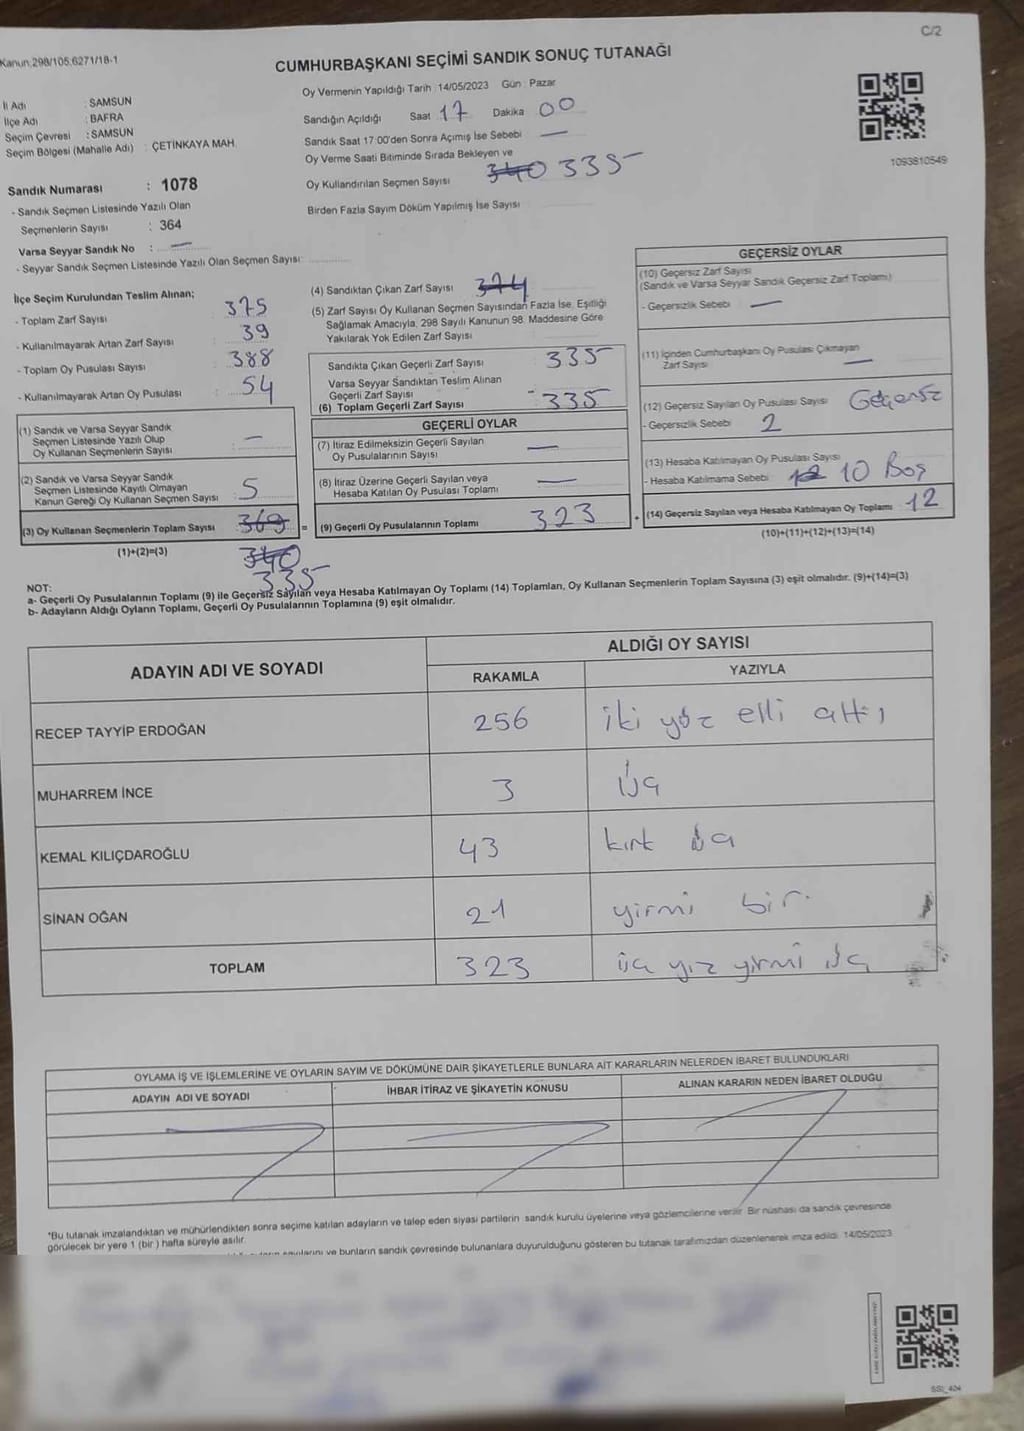 C/2
Kanun:298/105;6271/18-1
CUMHURBAŞKANI SEÇİMİ SANDIK SONUÇ TUTANAĞI
İl Adı : SAMSUN
İlçe Adı : BAFRA
Seçim Çevresi : SAMSUN
Seçim Bölgesi (Mahalle Adı) : ÇETİNKAYA MAH.
Sandık Numarası : 1078
- Sandık Seçmen Listesinde Yazılı Olan
Seçmenlerin Sayısı : 364
Varsa Seyyar Sandık No : —
- Seyyar Sandık Seçmen Listesinde Yazılı Olan Seçmen Sayısı:
Oy Vermenin Yapıldığı Tarih :14/05/2023 Gün : Pazar
Sandığın Açıldığı Saat 17 Dakika 00
Sandık Saat 17:00'den Sonra Açımış İse Sebebi —
Oy Verme Saati Bitiminde Sırada Bekleyen ve
Oy Kullandırılan Seçmen Sayısı 340 335
Birden Fazla Sayım Döküm Yapılmış İse Sayısı
1093810549
İlçe Seçim Kurulundan Teslim Alınan;
- Toplam Zarf Sayısı : 375
- Kullanılmayarak Artan Zarf Sayısı : 39
- Toplam Oy Pusulası Sayısı : 388
- Kullanılmayarak Artan Oy Pusulası : 54
(1) Sandık ve Varsa Seyyar Sandık
Seçmen Listesinde Yazılı Olup
Oy Kullanan Seçmenlerin Sayısı : —
(2) Sandık ve Varsa Seyyar Sandık
Seçmen Listesinde Kayıtlı Olmayan
Kanun Gereği Oy Kullanan Seçmen Sayısı : 5
(3) Oy Kullanan Seçmenlerin Toplam Sayısı : 369
(1)+(2)=(3) 340
335
(4) Sandıktan Çıkan Zarf Sayısı 374
(5) Zarf Sayısı Oy Kullanan Seçmen Sayısından Fazla İse, Eşitliği
Sağlamak Amacıyla, 298 Sayılı Kanunun 98. Maddesine Göre
Yakılarak Yok Edilen Zarf Sayısı
Sandıkta Çıkan Geçerli Zarf Sayısı 335
Varsa Seyyar Sandıktan Teslim Alınan
Geçerli Zarf Sayısı
(6) Toplam Geçerli Zarf Sayısı 335
GEÇERLİ OYLAR
(7) İtiraz Edilmeksizin Geçerli Sayılan
Oy Pusulalarının Sayısı —
(8) İtiraz Üzerine Geçerli Sayılan veya
Hesaba Katılan Oy Pusulası Toplamı —
= (9) Geçerli Oy Pusulalarının Toplamı 323 +
GEÇERSİZ OYLAR
(10) Geçersiz Zarf Sayısı
(Sandık ve Varsa Seyyar Sandık Geçersiz Zarf Toplamı)
- Geçersizlik Sebebi —
(11) İçinden Cumhurbaşkanı Oy Pusulası Çıkmayan
Zarf Sayısı —
(12) Geçersiz Sayılan Oy Pusulası Sayısı Geçersiz
- Geçersizlik Sebebi 2
(13) Hesaba Katılmayan Oy Pusulası Sayısı
- Hesaba Katılmama Sebebi : 12 10 Boş
(14) Geçersiz Sayılan veya Hesaba Katılmayan Oy Toplamı : 12
(10)+(11)+(12)+(13)=(14)
NOT:
a- Geçerli Oy Pusulalarının Toplamı (9) ile Geçersiz Sayılan veya Hesaba Katılmayan Oy Toplamı (14) Toplamları, Oy Kullanan Seçmenlerin Toplam Sayısına (3) eşit olmalıdır. (9)+(14)=(3)
b- Adayların Aldığı Oyların Toplamı, Geçerli Oy Pusulalarının Toplamına (9) eşit olmalıdır.
ADAYIN ADI VE SOYADI ALDIĞI OY SAYISI
RAKAMLA YAZIYLA
RECEP TAYYİP ERDOĞAN 256 iki yüz elli altı
MUHARREM İNCE 3 üç
KEMAL KILIÇDAROĞLU 43 kırk üç
SİNAN OĞAN 21 yirmi bir
TOPLAM 323 üç yüz yirmi üç
OYLAMA İŞ VE İŞLEMLERİNE VE OYLARIN SAYIM VE DÖKÜMÜNE DAİR ŞİKAYETLERLE BUNLARA AİT KARARLARIN NELERDEN İBARET BULUNDUKLARI
ADAYIN ADI VE SOYADI İHBAR İTİRAZ VE ŞİKAYETİN KONUSU ALINAN KARARIN NEDEN İBARET OLDUĞU
*Bu tutanak imzalandıktan ve mühürlendikten sonra seçime katılan adayların ve talep eden siyasi partilerin sandık kurulu üyelerine veya gözlemcilerine verilir. Bir nüshası da sandık çevresinde
görülecek bir yere 1 (bir) hafta süreyle asılır.
ve bunların sandık çevresinde bulunanlara duyurulduğunu gösteren bu tutanak tarafımızdan düzenlenerek imza edildi. 14/05/2023
SSI_404